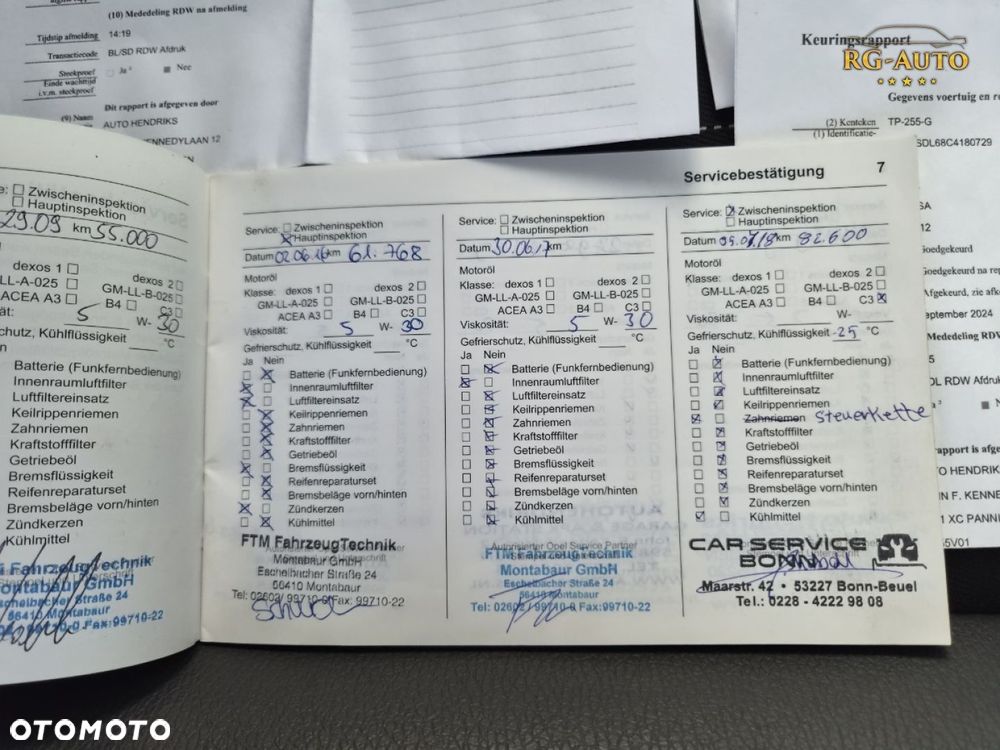 (10) Mededeling RDW na afmelding
Tijdstip afmelding 14:19
Transactiecode BL/SD RDW Afdruk
Steekproef Ja Nee
Einde wachttijd
i.v.m. steekproef
Dit rapport is afgegeven door
(9) Naam AUTO HENDRIKS
KENNEDYLAAN 12
Keuringsrapport
RG-AUTO
Gegevens voertuig en
(2) Kenteken TP-255-G
(1) Identificatie-
SDL68C4180729
SA
12
Goedgekeurd
Goedgekeurd na
Afgekeurd, zie
september 2024
MEDEDELING RDW
DL RDW Afdruk
Nee
rapport is afge
HENDRIKS
N F. KENNE
1 XC PANNI
5V01
Zwischeninspektion
Hauptinspektion
29.09 km 55.000
dexos 1 dexos 2
GM-LL-A-025 GM-LL-B-025
ACEA A3 B4 C3
5 W- 30
Kühlflüssigkeit °C
Batterie (Funkfernbedienung)
Innenraumluftfilter
Luftfiltereinsatz
Keilrippenriemen
Zahnriemen
Kraftstofffilter
Getriebeöl
Bremsflüssigkeit
Reifenreparaturset
Bremsbeläge vorn/hinten
Zündkerzen
Kühlmittel
FahrzeugTechnik
Montabaur GmbH
Eschelbacher Straße 24
56410 Montabaur
Fax:99710-22
Servicebestätigung 7
Service: Zwischeninspektion
Hauptinspektion
Datum 02.06.16 km 61.768
Motoröl
Klasse: dexos 1 dexos 2
GM-LL-A-025 GM-LL-B-025
ACEA A3 B4 C3
Viskosität: 5 W- 30
Gefrierschutz, Kühlflüssigkeit °C
Ja Nein
Batterie (Funkfernbedienung)
Innenraumluftfilter
Luftfiltereinsatz
Keilrippenriemen
Zahnriemen
Kraftstofffilter
Getriebeöl
Bremsflüssigkeit
Reifenreparaturset
Bremsbeläge vorn/hinten
Zündkerzen
Kühlmittel
FTM FahrzeugTechnik
Montabaur GmbH
Eschelbacher Straße 24
56410 Montabaur
Tel: 02602/ 99710-0 Fax:99710-22
Service: Zwischeninspektion
Hauptinspektion
Datum 30.06.17 km
Motoröl
Klasse: dexos 1 dexos 2
GM-LL-A-025 GM-LL-B-025
ACEA A3 B4 C3
Viskosität: 5 W- 30
Gefrierschutz, Kühlflüssigkeit °C
Ja Nein
Batterie (Funkfernbedienung)
Innenraumluftfilter
Luftfiltereinsatz
Keilrippenriemen
Zahnriemen
Kraftstofffilter
Getriebeöl
Bremsflüssigkeit
Reifenreparaturset
Bremsbeläge vorn/hinten
Zündkerzen
Kühlmittel
Autorisierter Opel Service Partner
FTM FahrzeugTechnik
Montabaur GmbH
Eschelbacher Straße 24
56410 Montabaur
Tel: 02602 / 99710-0 Fax:99710-22
Service: Zwischeninspektion
Hauptinspektion
Datum km 82.600
Motoröl
Klasse: dexos 1 dexos 2
GM-LL-A-025 GM-LL-B-025
ACEA A3 B4 C3
Viskosität: W-
Gefrierschutz, Kühlflüssigkeit -25 °C
Ja Nein
Batterie (Funkfernbedienung)
Innenraumluftfilter
Luftfiltereinsatz
Keilrippenriemen
Zahnriemen Steuerkette
Kraftstofffilter
Getriebeöl
Bremsflüssigkeit
Reifenreparaturset
Bremsbeläge vorn/hinten
Zündkerzen
Kühlmittel
CAR SERVICE
BONN
Maarstr. 42 • 53227 Bonn-Beuel
Tel.: 0228 - 4222 98 08
OTOMOTO